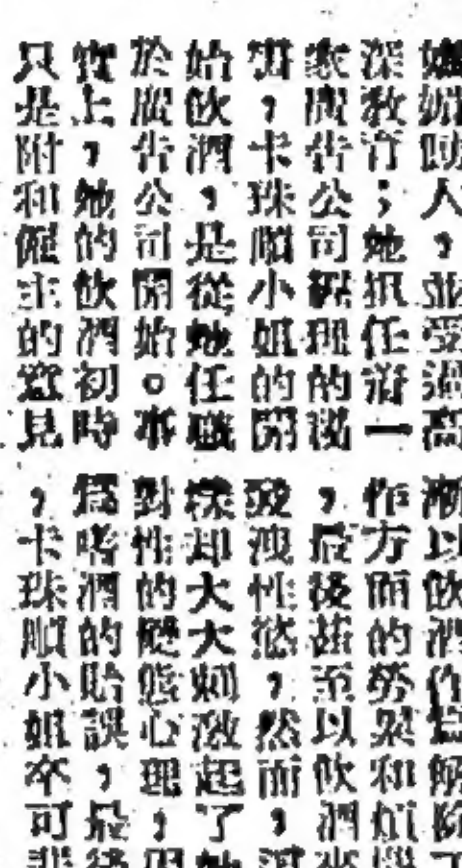 媚動人,並受過高
深教育;她担任這一
家廣告公司經理的
,卡珠順小姐的開
始飲酒,是從她任職
於廣告公司開始。事
實上,她的飲酒初時
只是附和僱主的意見
漸以飲酒作為解除
作方面的勞累和煩
,最後甚至以飲酒來
發洩性慾,然而,
樣却大大刺激起了她
對性的變態心理;因
為嗜酒的貽誤,最後
,卡珠順小姐卒可悲